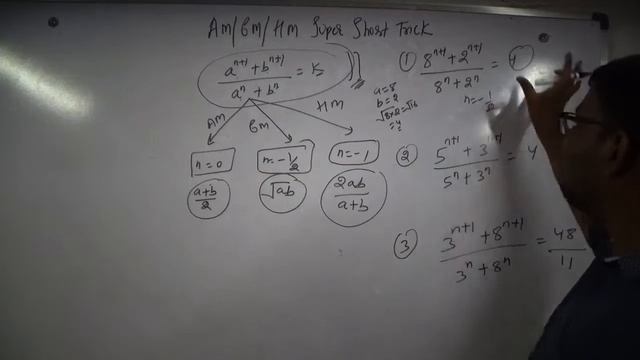 AM/GM/HM Super Short Trick
a^{n+1} + b^{n+1} / a^n + b^n = K
AM
GM
HM
n=0
n=-1/2
n=-1
a+b / 2
√ab
2ab / a+b
① 8^{n+1} + 2^{n+1} / 8^n + 2^n = 4
a=8
b=2
√8×2 = √16
= 4
n=-1/2
② 5^{n+1} + 3^{n+1} / 5^n + 3^n = 4
③ 3^{n+1} + 8^{n+1} / 3^n + 8^n = 48 / 11